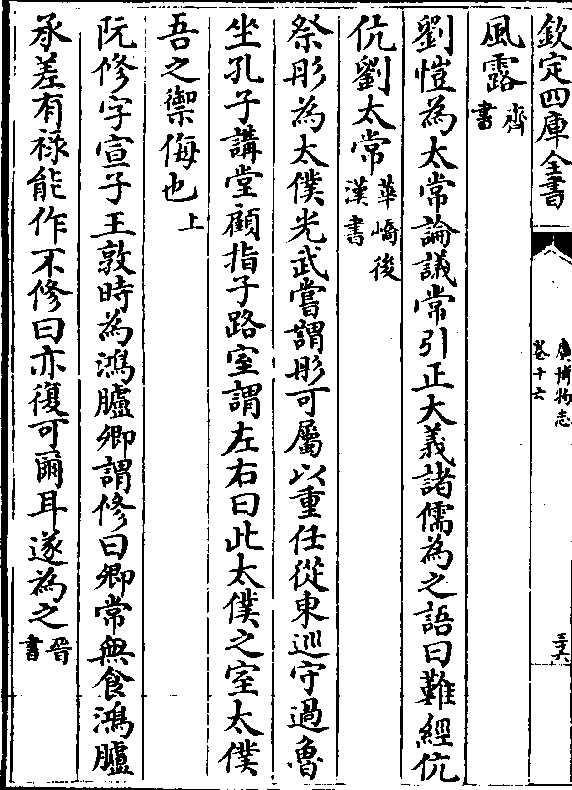 欽定四庫全書
廣博物志
卷十六
三六
風露齊書
劉愷為太常論議常引正大義諸儒為之語曰難經伉
伉劉太常華嶠後漢書
祭肜為太僕光武嘗謂肜可屬以重任從東巡守過魯
坐孔子講堂顧指子路室謂左右曰此太僕之室太僕
吾之禦侮也上
阮修字宣子王敦時為鴻臚卿謂修曰卿常無食鴻臚
承差有祿能作不修曰亦復可爾耳遂為之晉書